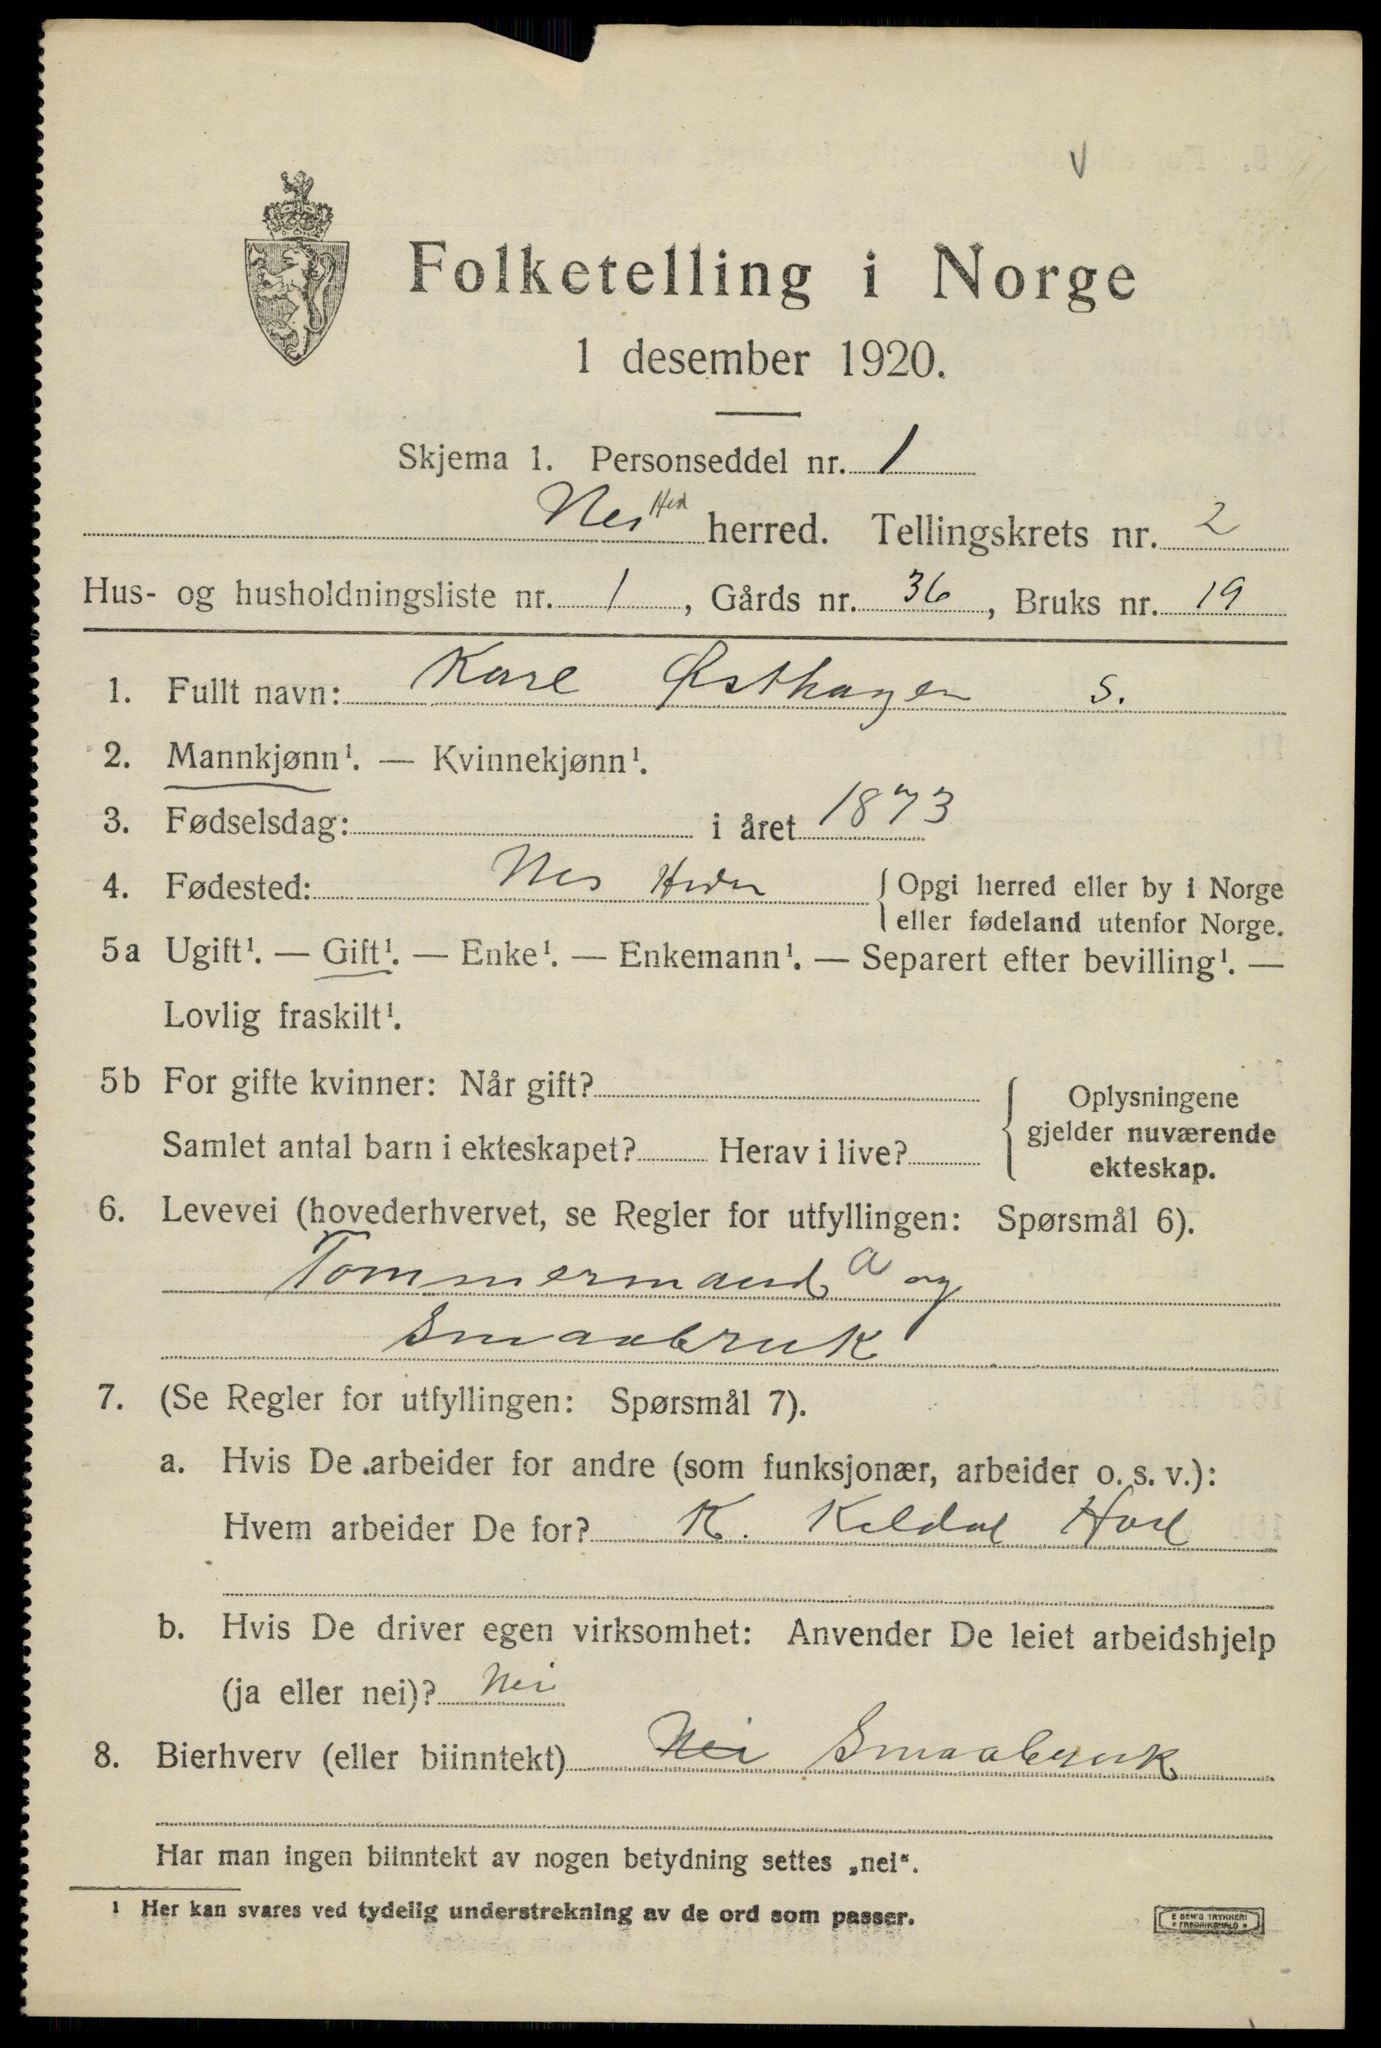 Folketelling i Norge
1 desember 1920.
Skjema 1. Personseddel nr. 1
Nes Hed herred. Tellingskrets nr. 2
Hus- og husholdningsliste nr. 1, Gårds nr. 36, Bruks nr. 19
1. Fullt navn: Karl Østhagen s.
2. Mannkjønn¹. — Kvinnekjønn¹.
3. Fødselsdag: i året 1873
4. Fødested: Nes { Opgi herred eller by i Norge
eller fødeland utenfor Norge.
5a Ugift¹. — Gift¹. — Enke¹. — Enkemann¹. — Separert efter bevilling¹. —
Lovlig fraskilt¹.
5b For gifte kvinner: Når gift?
Samlet antal barn i ekteskapet? Herav i live?
Oplysningene
gjelder nuværende
ekteskap.
6. Levevei (hovederhvervet, se Regler for utfyllingen: Spørsmål 6).
Tømmermand a og
Smaabruk
7. (Se Regler for utfyllingen: Spørsmål 7).
a. Hvis De arbeider for andre (som funksjonær, arbeider o. s. v.):
Hvem arbeider De for? K.
b. Hvis De driver egen virksomhet: Anvender De leiet arbeidshjelp
(ja eller nei)? Nei
8. Bierhverv (eller biinntekt) Nei Smaabruk
Har man ingen biinntekt av nogen betydning settes „nei“.
¹ Her kan svares ved tydelig understrekning av de ord som passer.
E SEM'S TRYKKERI
FREDRIKSHALD